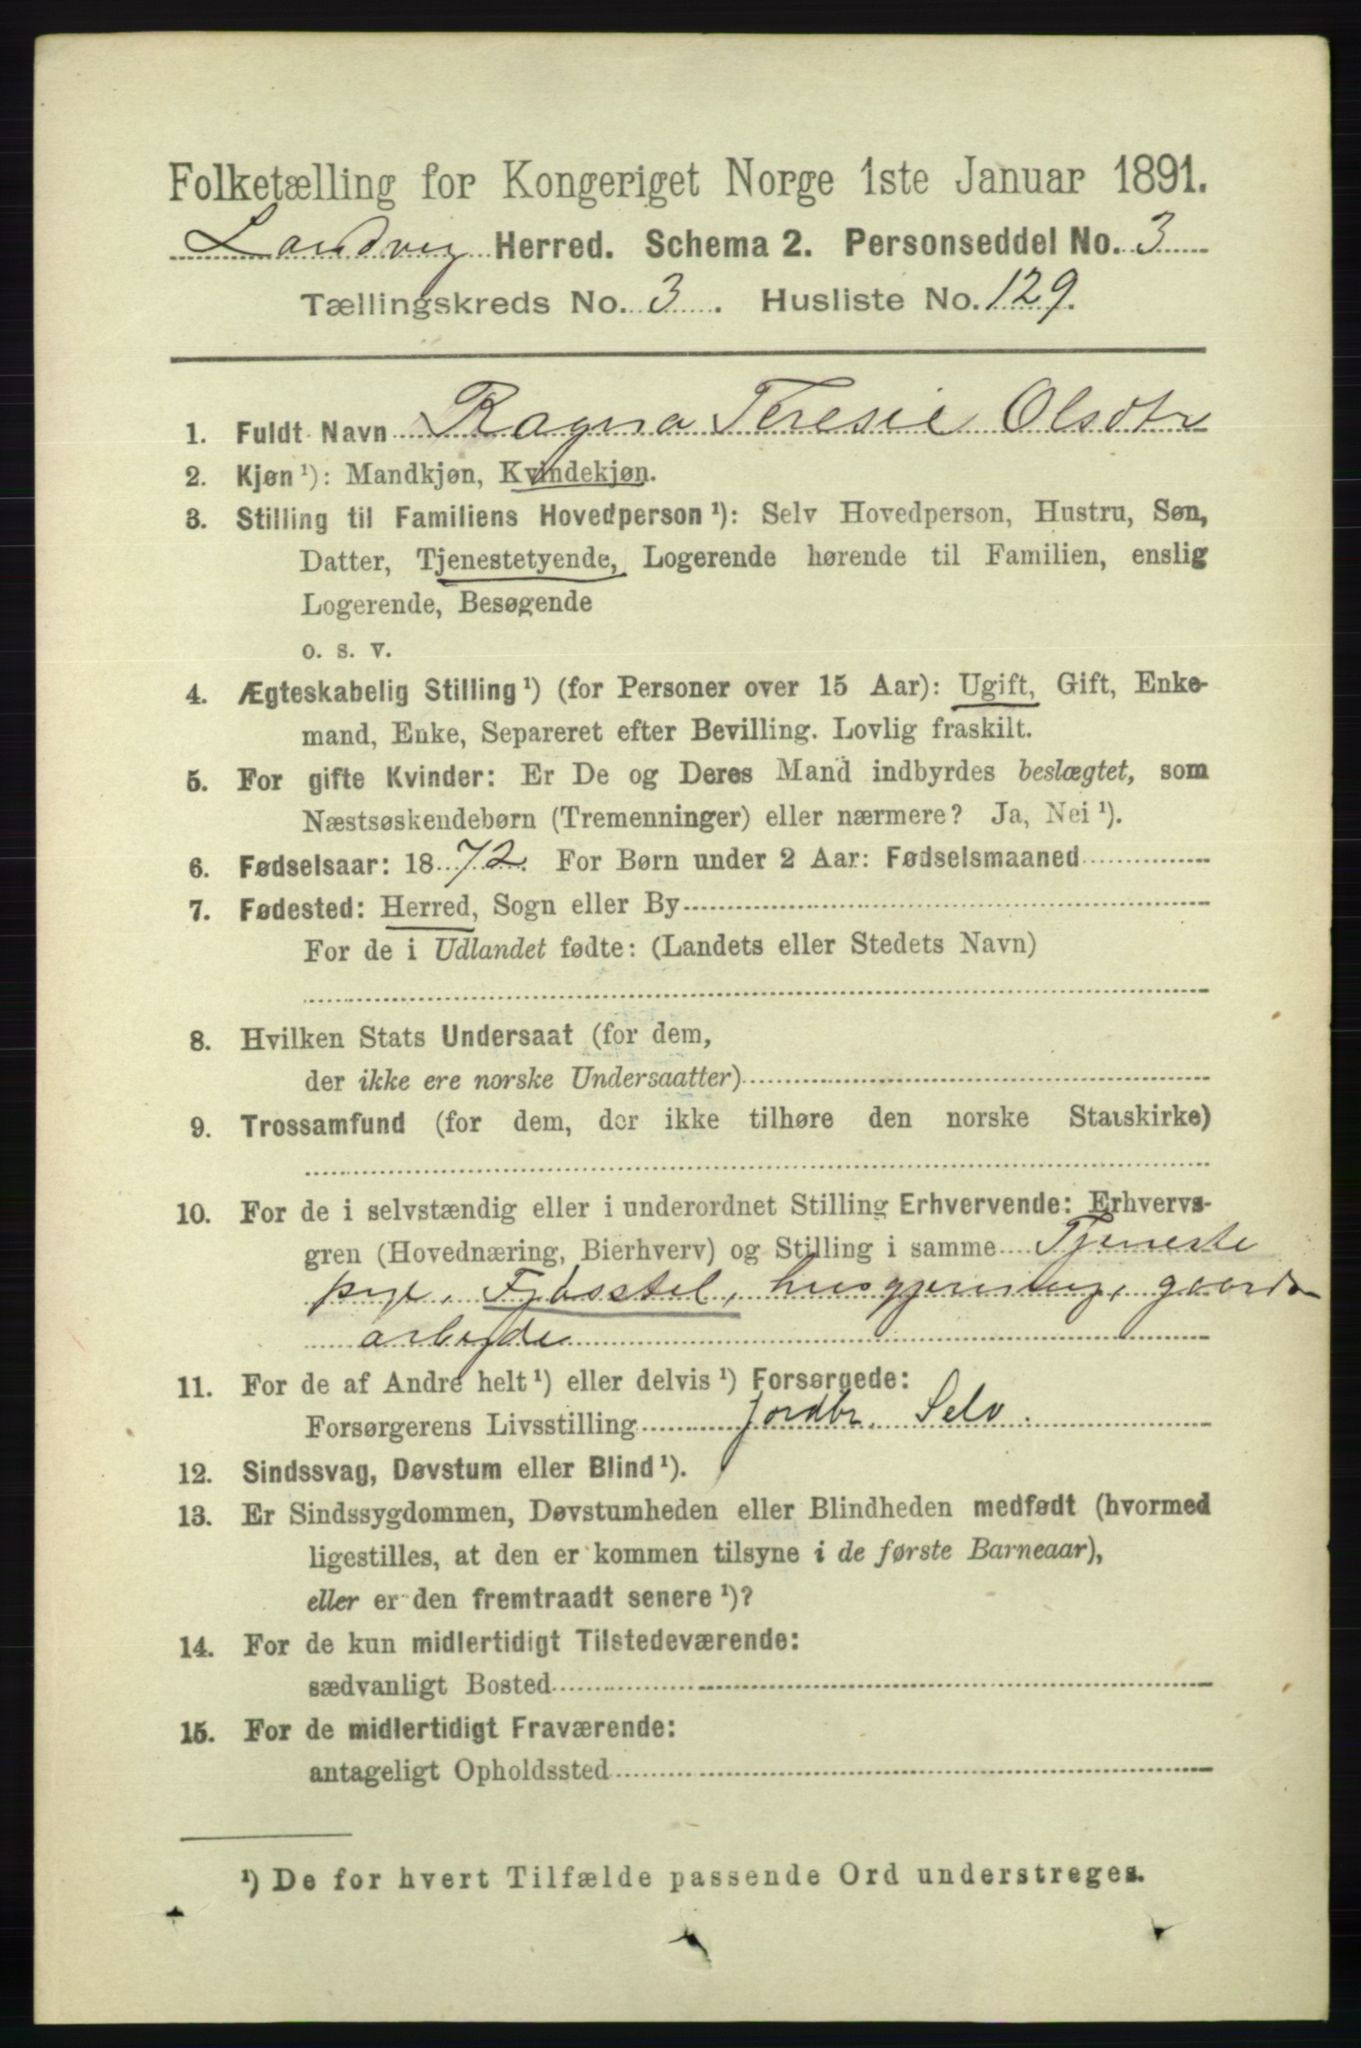 Folketælling for Kongeriget Norge 1ste Januar 1891.
Landvig Herred. Schema 2. Personseddel No. 3
Tællingskreds No. 3. Husliste No. 129.
1. Fuldt Navn Ragna Teresie Olsdtr
2. Kjøn¹): Mandkjøn, Kvindekjøn.
3. Stilling til Familiens Hovedperson¹): Selv Hovedperson, Hustru, Søn,
Datter, Tjenestetyende, Logerende hørende til Familien, enslig
Logerende, Besøgende
o. s. v.
4. Ægteskabelig Stilling¹) (for Personer over 15 Aar): Ugift, Gift, Enke-
mand, Enke, Separeret efter Bevilling. Lovlig fraskilt.
5. For gifte Kvinder: Er De og Deres Mand indbyrdes beslægtet, som
Næstsøskendebørn (Tremenninger) eller nærmere? Ja, Nei¹).
6. Fødselsaar: 1872. For Børn under 2 Aar: Fødselsmaaned
7. Fødested: Herred, Sogn eller By
For de i Udlandet fødte: (Landets eller Stedets Navn)
8. Hvilken Stats Undersaat (for dem,
der ikke ere norske Undersaatter)
9. Trossamfund (for dem, der ikke tilhøre den norske Statskirke)
10. For de i selvstændig eller i underordnet Stilling Erhvervende: Erhvervs-
gren (Hovednæring, Bierhverv) og Stilling i samme Tjeneste
pige, Fjøsstel, husgjerning, gaards-
arbeyde
11. For de af Andre helt¹) eller delvis¹) Forsørgede:
Forsørgerens Livsstilling Jordbr. Selv.
12. Sindssvag, Døvstum eller Blind¹).
13. Er Sindssygdommen, Døvstumheden eller Blindheden medfødt (hvormed
ligestilles, at den er kommen tilsyne i de første Barneaar),
eller er den fremtraadt senere¹)?
14. For de kun midlertidigt Tilstedeværende:
sædvanligt Bosted
15. For de midlertidigt Fraværende:
antageligt Opholdssted
¹) De for hvert Tilfælde passende Ord understreges.